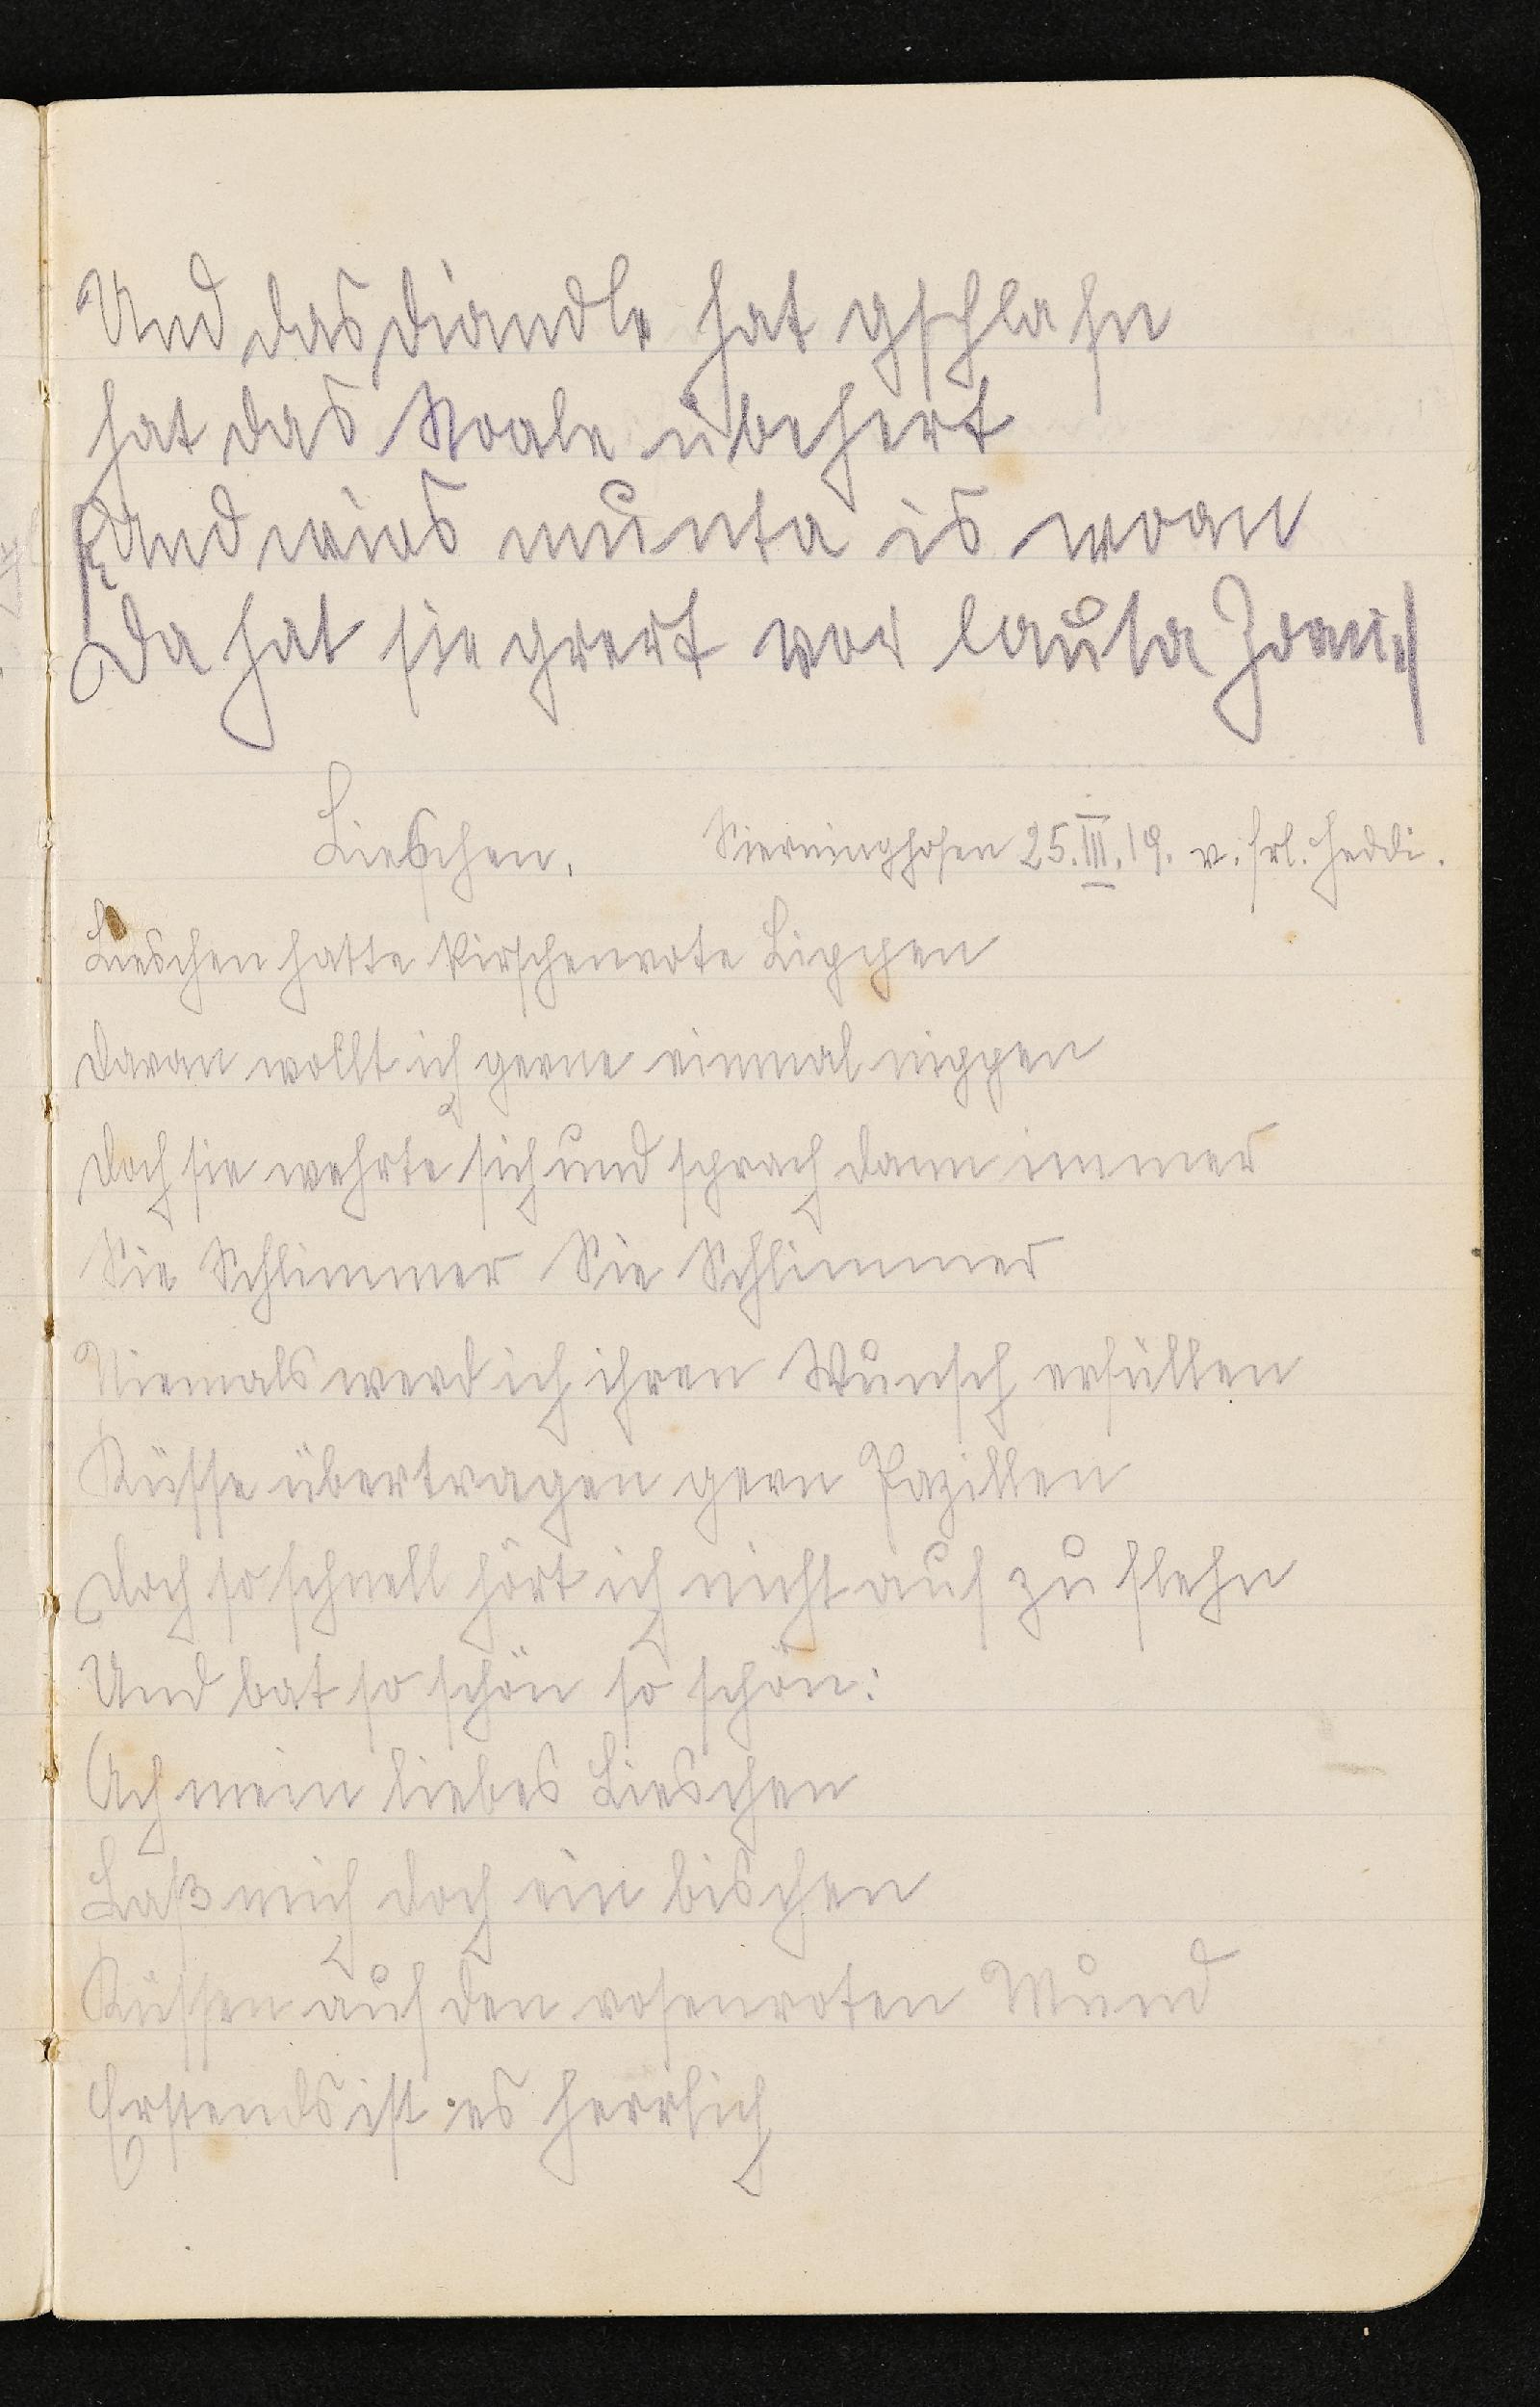 Und das Diandle hat gschlafn
hat das Roale übehert
Und wies munta is woan
Da hat sie grert vor lauta Zoan
Lieschen, Sierninghofen 25.III.19. v. Frl. Heddi.
Lieschen hatte kirschenrote Lippen
daran wollt ich gerne einmal nippen
doch sie wehrte sich und sprach dann immer
Sie Schlimmer Sie Schlimmer
Niemals werd ich ihren Wunsch erfüllen
Küsse übertragen gern Pazillen
doch so schnell hört ich nicht auf zu flehn
Und bat so schön so schön:
Ach mein liebes Lieschen
Laß mich doch ein bischen
Küssen auf den rosenroten Mund
Erstends ist es herrlich